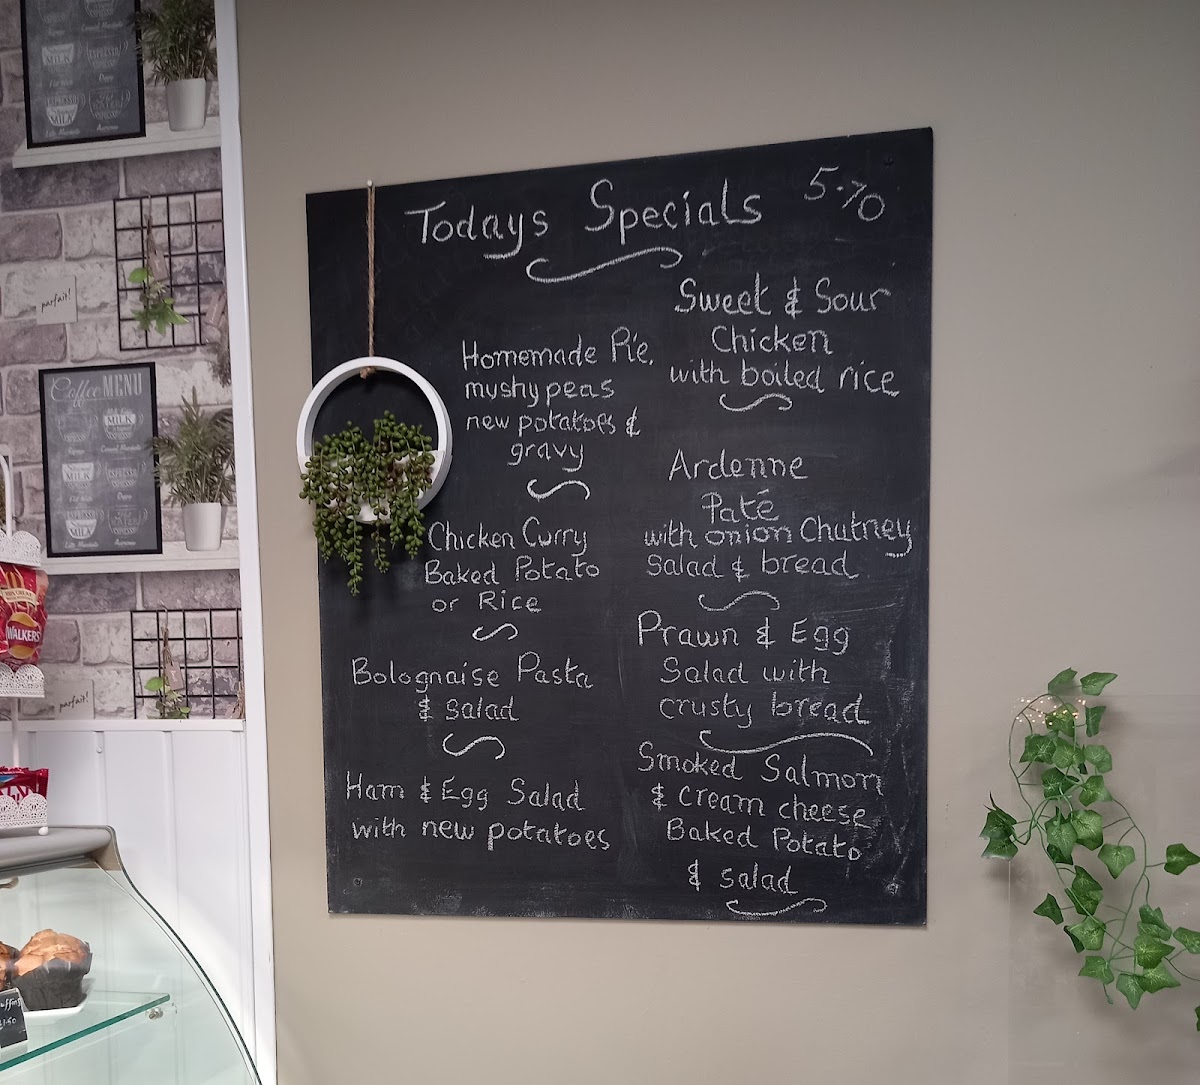 Todays Specials 5.70
Homemade Pie,
mushy peas
new potatoes &
gravy
Chicken Curry
Baked Potato
or Rice
Bolognaise Pasta
& Salad
Ham & Egg Salad
with new potatoes
Sweet & Sour
Chicken
with boiled rice
Ardenne
Paté
with onion Chutney
Salad & bread
Prawn & Egg
Salad with
crusty bread
Smoked Salmon
& cream cheese
Baked Potato
& salad
parfait!
Coffee MENU
MILK
ESPRESSO
parfait!
WALKERS